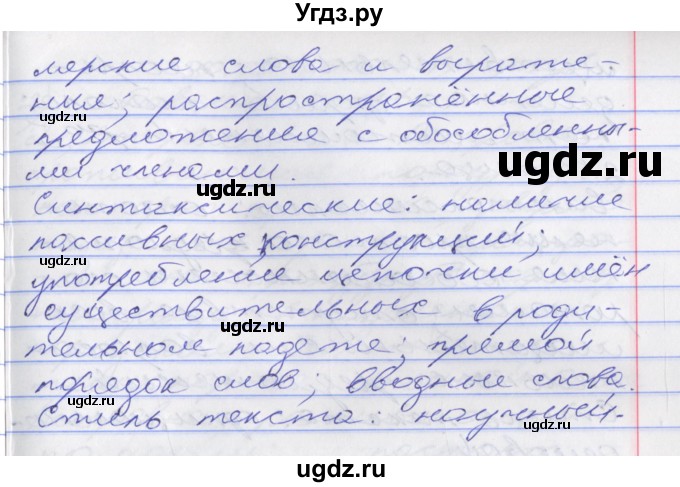 Угдз.ру
лярские слова и выраже-
ния; распространённые
предложения с обособленны-
ми членами.
Синтаксические: наличие
пассивных конструкций;
употребление цепочки имён
существительных в роди-
тельном падеже; прямой
порядок слов; вводные слова.
Стиль текста: научный.
ugdz.ru
ugdz.ru
ugdz.ru
ugdz.ru
ugdz.ru
ugdz.ru
ugdz.ru
ugdz.ru
ugdz.ru